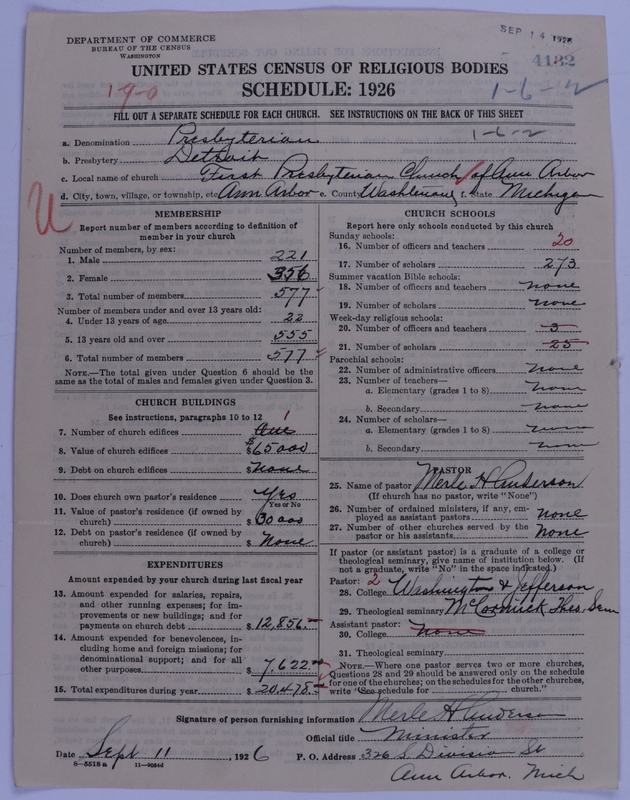 DEPARTMENT OF COMMERCE
BUREAU OF THE CENSUS
WASHINGTON
SEP 14 1926
4132
UNITED STATES CENSUS OF RELIGIOUS BODIES
SCHEDULE: 1926
19-0
1-6-12
FILL OUT A SEPARATE SCHEDULE FOR EACH CHURCH. SEE INSTRUCTIONS ON THE BACK OF THIS SHEET
1-6-2
a. Denomination Presbyterian
b. Presbytery Detroit
c. Local name of church First Presbyterian Church of Ann Arbor
d. City, town, village, or township, etc Ann Arbor e. County Washtenaw f. State Michigan
U
MEMBERSHIP
Report number of members according to definition of
member in your church
Number of members, by sex:
1. Male 221
2. Female 356
3. Total number of members 577
Number of members under and over 13 years old:
4. Under 13 years of age 22
5. 13 years old and over 555
6. Total number of members 577
NOTE.—The total given under Question 6 should be
the same as the total of males and females given under Question 3.
CHURCH BUILDINGS
See instructions, paragraphs 10 to 12
7. Number of church edifices One 1
8. Value of church edifices $65000
9. Debt on church edifices $ None
10. Does church own pastor's residence Yes
Yes or No
11. Value of pastor's residence (if owned by
church) $ 30000
12. Debt on pastor's residence (if owned by
church) $ None
EXPENDITURES
Amount expended by your church during last fiscal year
13. Amount expended for salaries, repairs,
and other running expenses; for im-
provements or new buildings; and for
payments on church debt $ 12,856.
14. Amount expended for benevolences, in-
cluding home and foreign missions; for
denominational support; and for all
other purposes $ 7,622.
15. Total expenditures during year $ 20,478
CHURCH SCHOOLS
Report here only schools conducted by this church
Sunday schools:
16. Number of officers and teachers 20
17. Number of scholars 273
Summer vacation Bible schools:
18. Number of officers and teachers none
19. Number of scholars none
Week-day religious schools:
20. Number of officers and teachers 3
21. Number of scholars 25
Parochial schools:
22. Number of administrative officers none
23. Number of teachers—
a. Elementary (grades 1 to 8) none
b. Secondary none
24. Number of scholars—
a. Elementary (grades 1 to 8) none
b. Secondary none
PASTOR
25. Name of pastor Merle H Anderson
(If church has no pastor, write "None")
26. Number of ordained ministers, if any, em-
ployed as assistant pastors none
27. Number of other churches served by the
pastor or his assistants none
If pastor (or assistant pastor) is a graduate of a college or
theological seminary, give name of institution below. (If
not a graduate, write "No" in the space indicated.)
Pastor: 2
28. College Washington & Jefferson
29. Theological seminary McCormick Theo. Sem
Assistant pastor:
30. College None
31. Theological seminary
NOTE.—Where one pastor serves two or more churches,
Questions 28 and 29 should be answered only on the schedule
for one of the churches; on the schedules for the other churches,
write "See schedule for church."
Signature of person furnishing information Merle H Anderson
Official title Minister
Date Sept 11, 1926 P. O. Address 326 S. Division St
8-5518 a
Ann Arbor, Mich